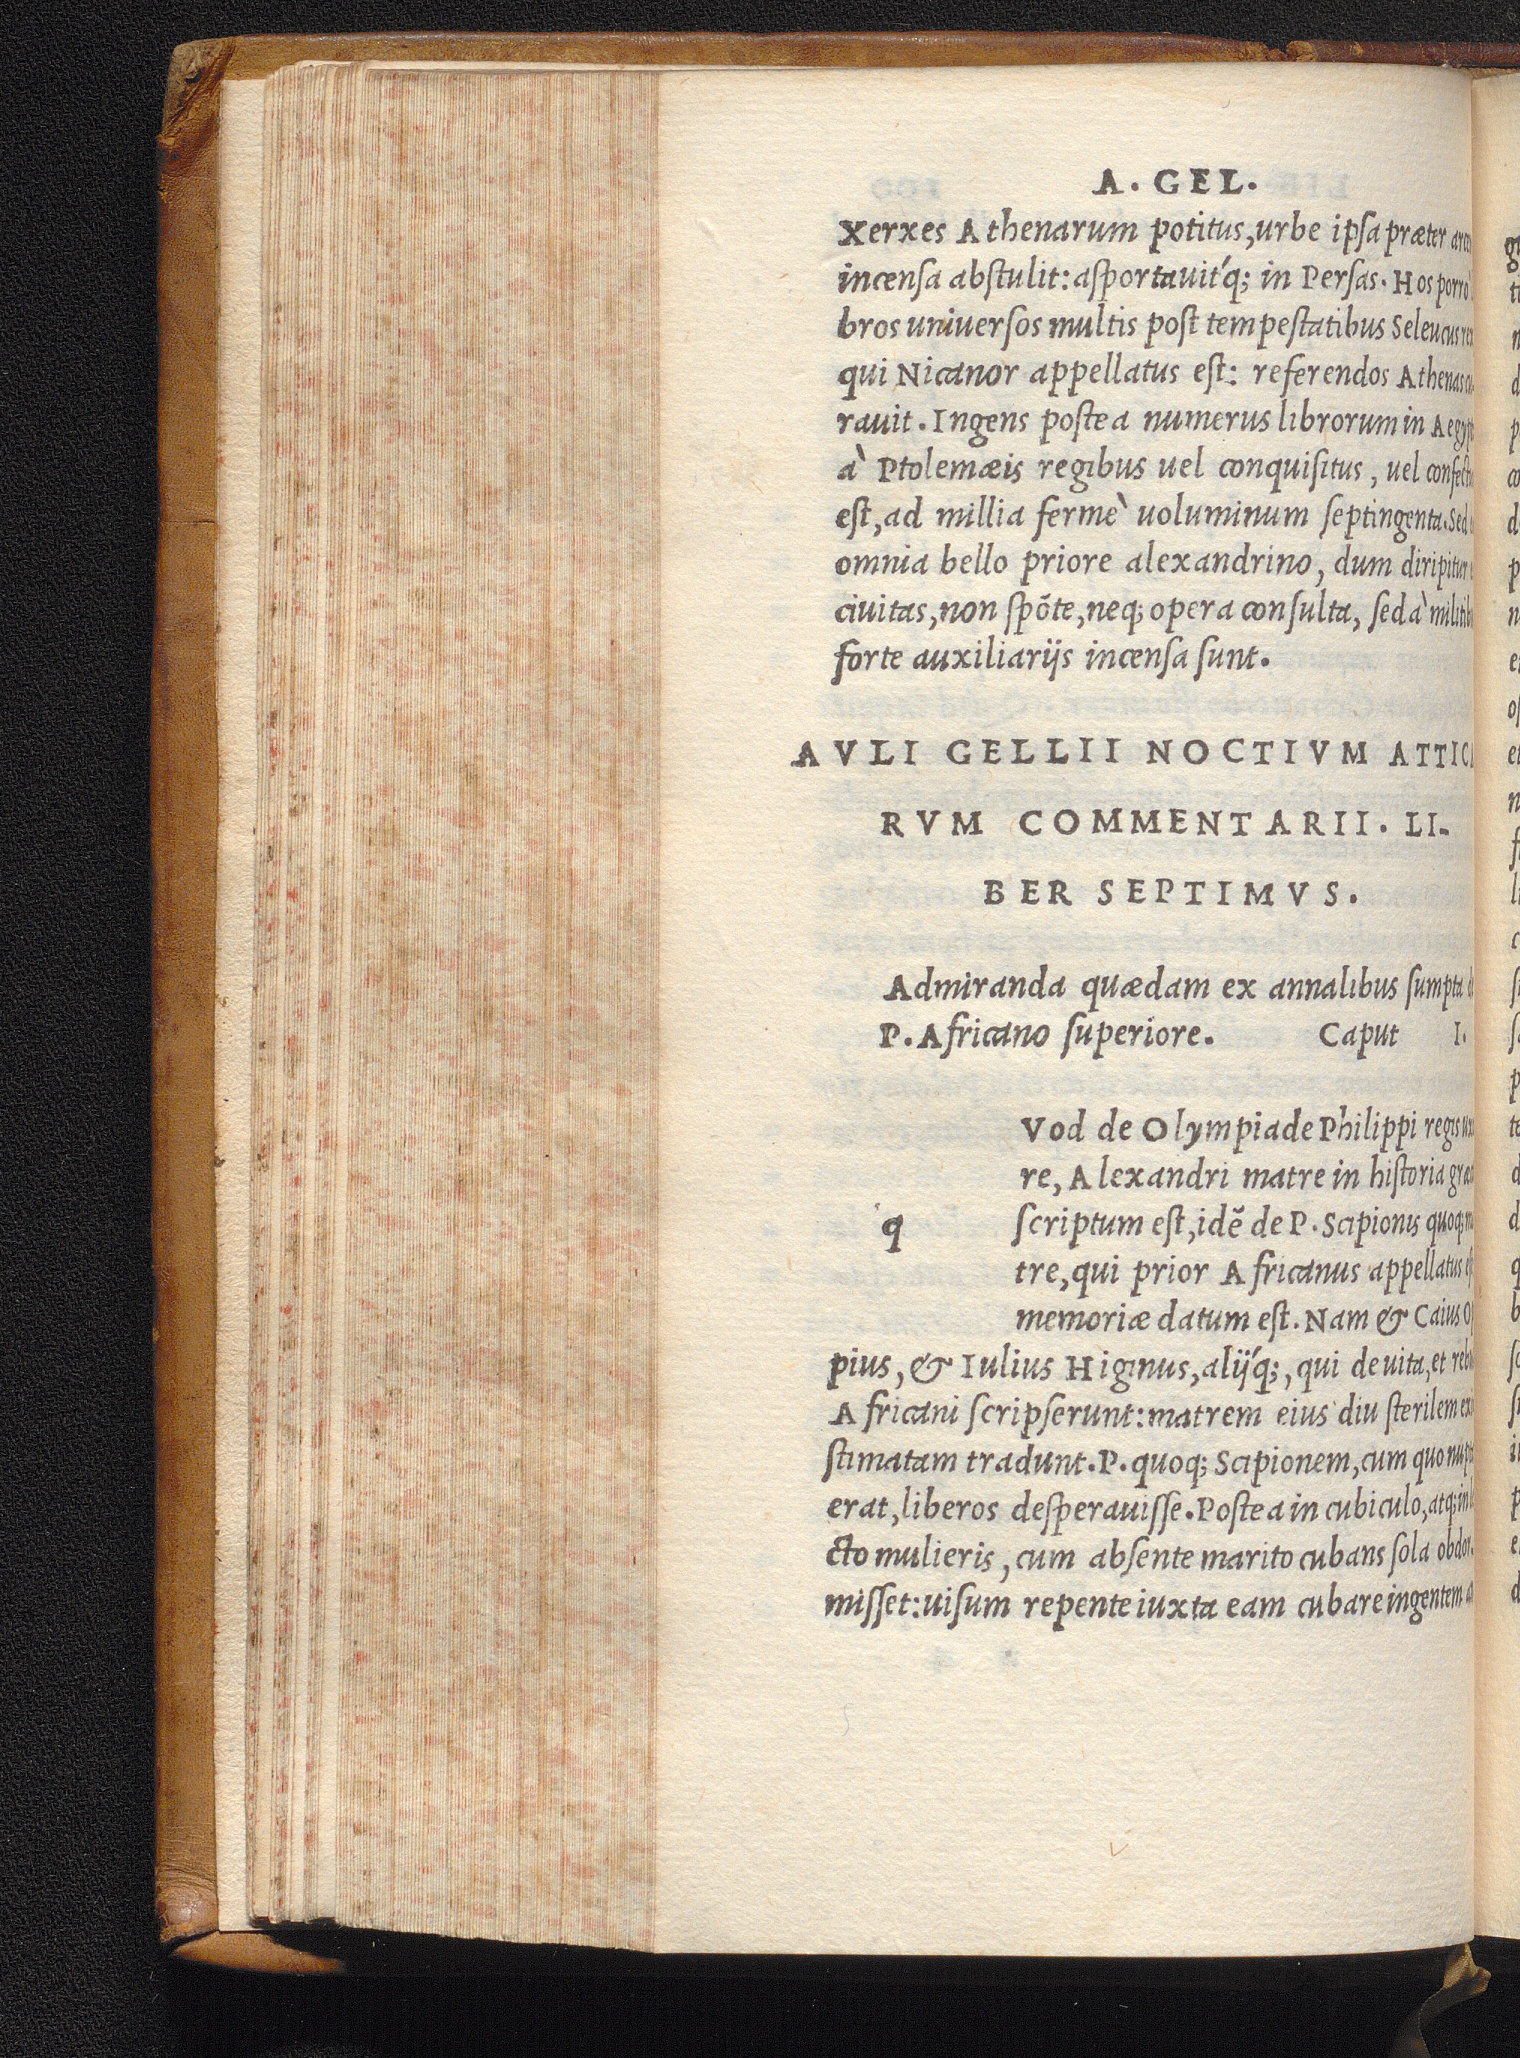 A. GEL.
Xerxes Athenarum potitus, urbe ipsa præter
incensa abstulit: asportauit'q; in Persas. Hos porrò
bros uniuersos multis post tempestatibus Seleucus rex
qui Nicanor appellatus est: referendos Athenas
rauit. Ingens postea numerus librorum in
à Ptolemæis regibus uel conquisitus, uel
est, ad millia fermè uoluminum septingenta. Sed
omnia bello priore alexandrino, dum diripitur
ciuitas, non spōte, neq; opera consulta, sed à
forte auxiliarijs incensa sunt.
AVLI GELLII NOCTIVM ATTICA
RVM COMMENTARII. LI-
BER SEPTIMVS.
Admiranda quædam ex annalibus sumpta
P. Africano superiore. Caput I.
Vod de Olympiade Philippi regis
re, Alexandri matre in historia
q scriptum est, idē de P. Scipionis quoq;
tre, qui prior Africanus appellatus
memoriæ datum est. Nam & Caius
pius, & Iulius Higinus, alij'q;, qui de uita, et
Africani scripserunt: matrem eius diu sterilem
stimatam tradunt. P. quoq; Scipionem, cum quo
erat, liberos desperauisse. Postea in cubiculo, atq; in
cto mulieris, cum absente marito cubans sola obdor
misset: uisum repente iuxta eam cubare ingentem